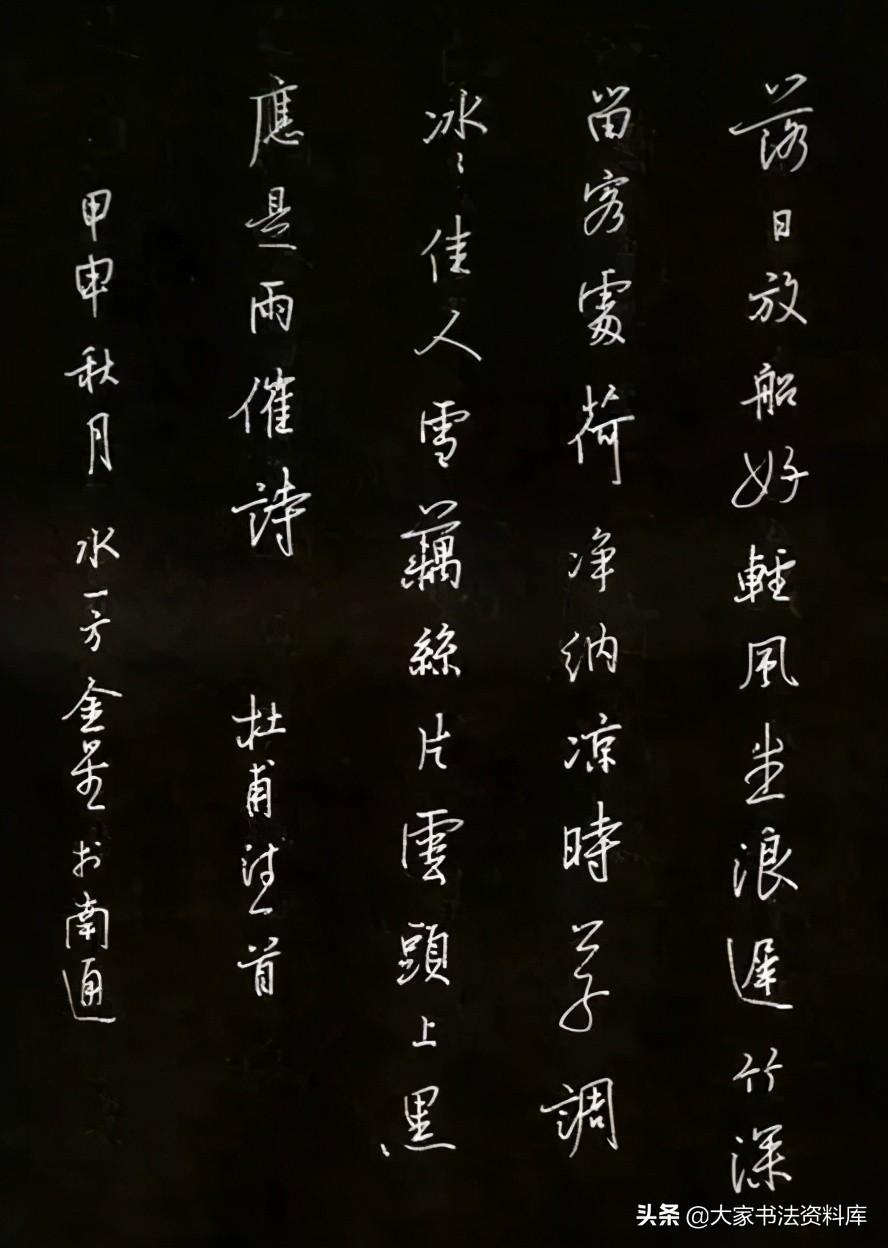 落日放船好輕風生浪遲竹深
留客處荷净纳凉時公子調
冰〻佳人雪藕絲片雲頭上黑
應是雨催詩 杜甫诗一首
甲申秋月 水一方金 於南通
头条 @大家书法资料库